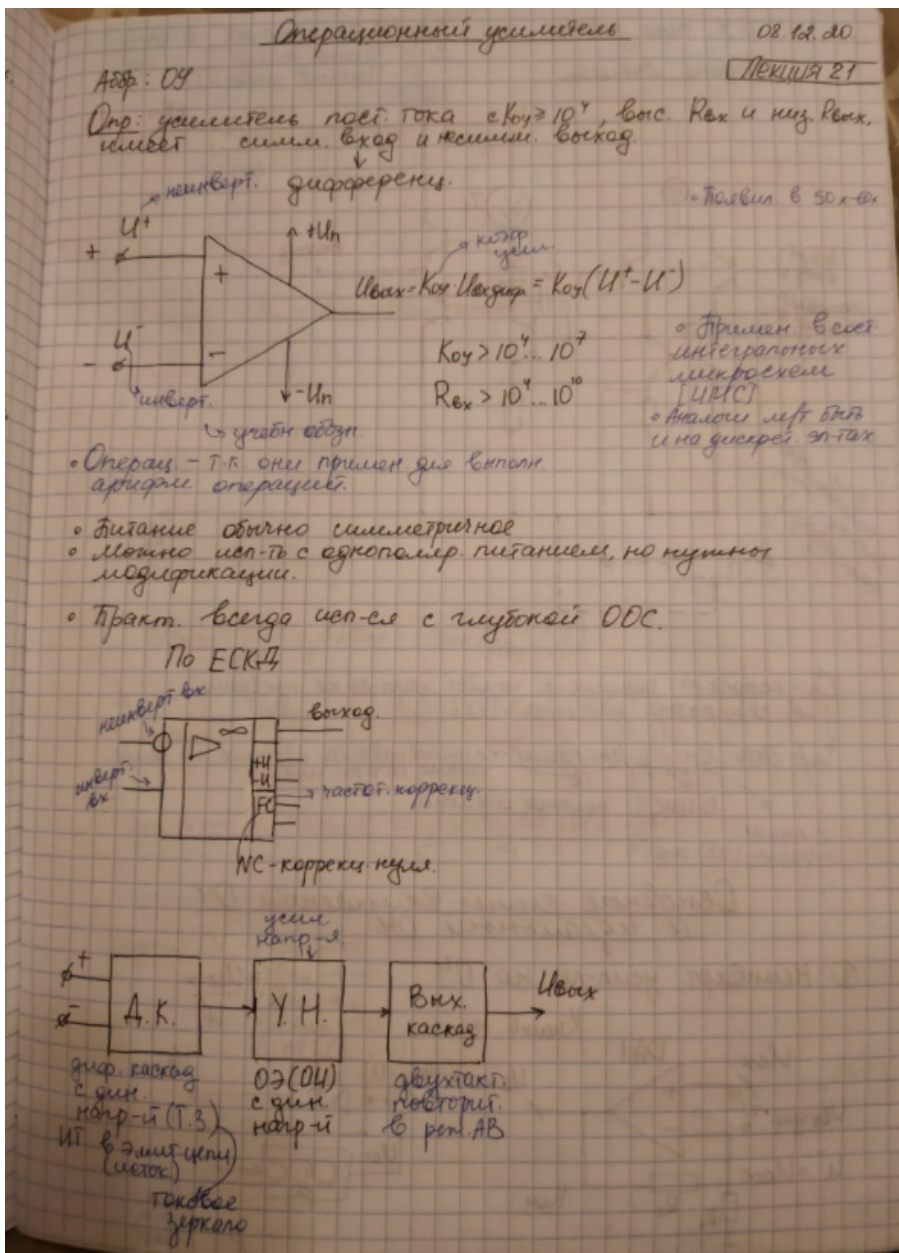 Операционный усилитель
08.12.20
Лекция 21
Аббр: ОУ
Опр: усилитель пост. тока с Kоу ≥ 10⁴, выс. Rвх и низ. Rвых,
имеет симм. вход и несимм. выход.
дифференц.
неинверт.
• Появил в 50х-60х
U⁺
+
+Uп
+
коэф.
усил.
Uвых = Kоу · Uвх диф = Kоу (U⁺ - U⁻)
U⁻
-
-
Kоу > 10⁴... 10⁷
Rвх > 10⁴... 10¹⁰
• Примен. в сост.
интегральных
микросхем
[ИМС]
• Аналоги
быть
и на дискрет. эл-тах
-Uп
инверт.
учебн. обозн.
• Операц. - т.к. они примен. для выполн
арифм операций.
• Питание обычно симметричное
• Можно исп-ть с однополяр. питанием, но нужны
модификации.
• Практ. всегда исп-ся с глубокой ООС.
По ЕСКД
неинверт вх.
выход.
∞
инверт.
вх
+U
-U
FC
частот. коррекц.
NC - коррекц. нуля.
усил
напр-я
+
-
Д.К.
У.Н.
Вых.
каскад
Uвых
диф. каскад
с дин.
нагр-й (Т.З)
ИТ в эмит. цепи
(исток)
токовое
зеркало
ОЭ(ОИ)
с дин.
нагр-й
двухтакт.
повторит.
в реж. АВ